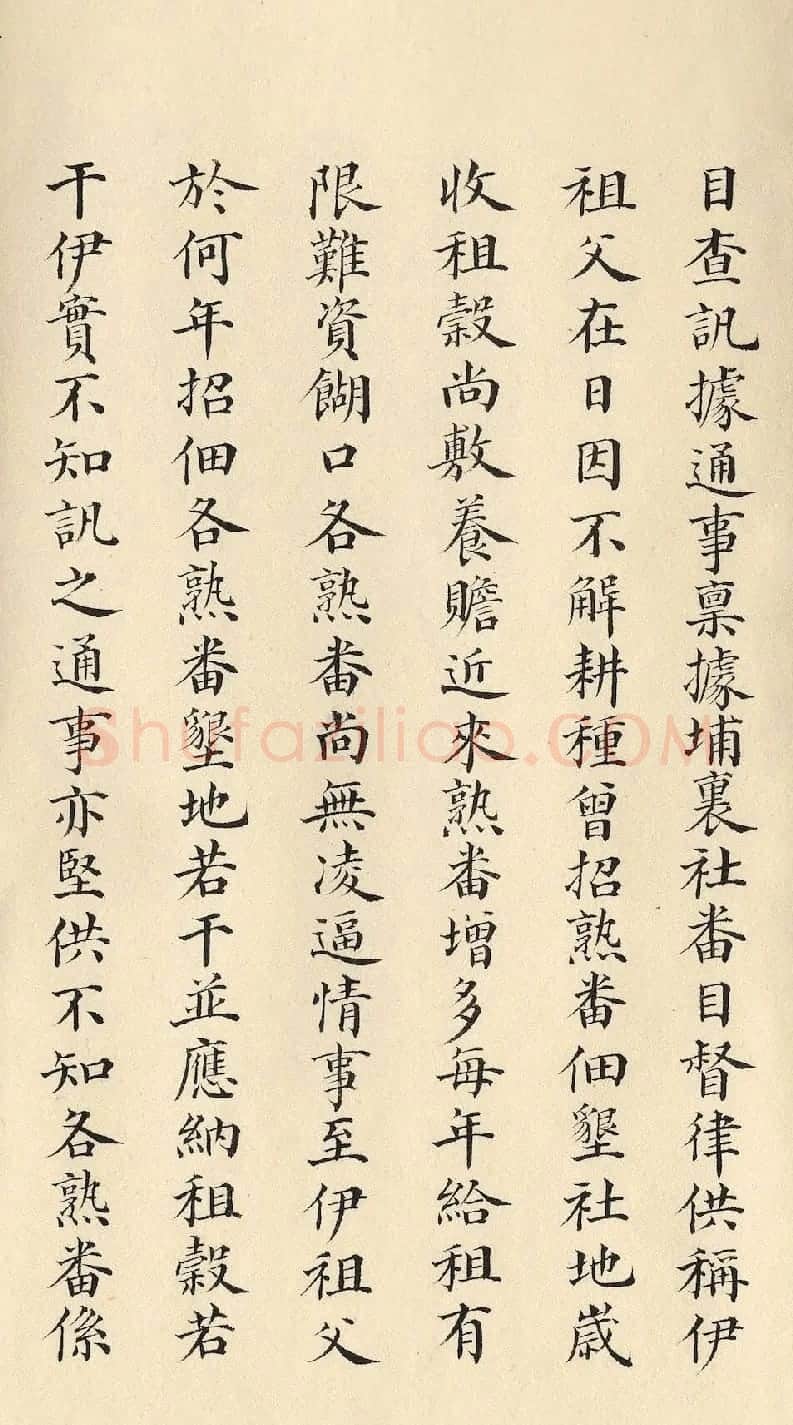 目查訊據通事稟據埔裏社番目督律供稱伊
祖父在日因不解耕種曾招熟番佃墾社地歲
收租榖尚敷養贍近來熟番增多每年給租有
限難資餬口各熟番尚無凌逼情事至伊祖父
於何年招佃各熟番墾地若干並應納租榖若
干伊實不知訊之通事亦堅供不知各熟番係
Shufaziliao.COM